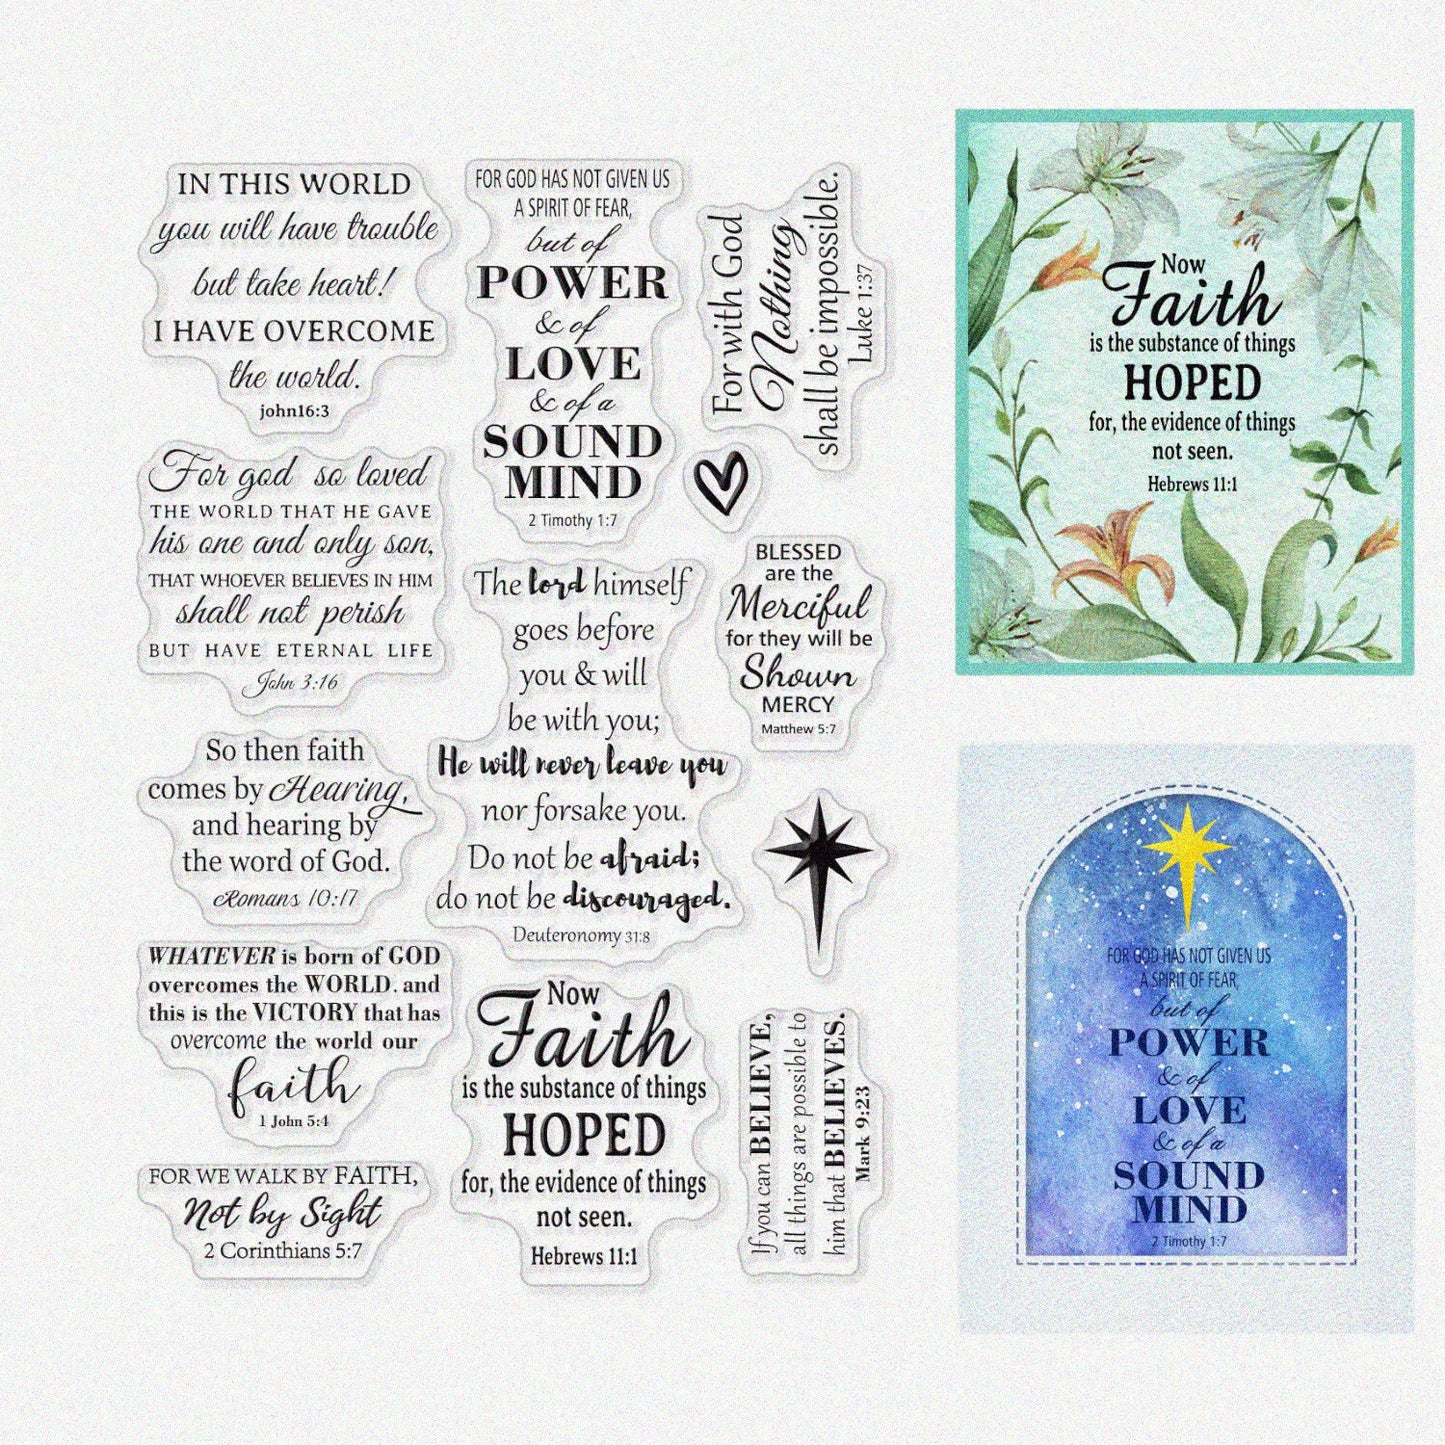 IN THIS WORLD
you will have trouble
but take heart!
I HAVE OVERCOME
the world.
john16:3
For god so loved
THE WORLD THAT HE GAVE
his one and only son,
THAT WHOEVER BELIEVES IN HIM
shall not perish
BUT HAVE ETERNAL LIFE
John 3:16
So then faith
comes by Hearing,
and hearing by
the word of God.
Romans 10:17
WHATEVER is born of GOD
overcomes the WORLD. and
this is the VICTORY that has
overcome the world our
faith
1 John 5:4
FOR WE WALK BY FAITH,
Not by Sight
2 Corinthians 5:7
FOR GOD HAS NOT GIVEN US
A SPIRIT OF FEAR,
but of
POWER
& of
LOVE
& of a
SOUND
MIND
2 Timothy 1:7
The lord himself
goes before
you & will
be with you;
He will never leave you
nor forsake you.
Do not be afraid;
do not be discouraged.
Deuteronomy 31:8
Now
Faith
is the substance of things
HOPED
for, the evidence of things
not seen.
Hebrews 11:1
For with God
Nothing
shall be impossible.
Luke 1:37
BLESSED
are the
Merciful
for they will be
Shown
MERCY
Matthew 5:7
If you can BELIEVE,
all things are possible to
him that BELIEVES.
Mark 9:23
Now
Faith
is the substance of things
HOPED
for, the evidence of things
not seen.
Hebrews 11:1
FOR GOD HAS NOT GIVEN US
A SPIRIT OF FEAR,
but of
POWER
& of
LOVE
& of a
SOUND
MIND
2 Timothy 1:7